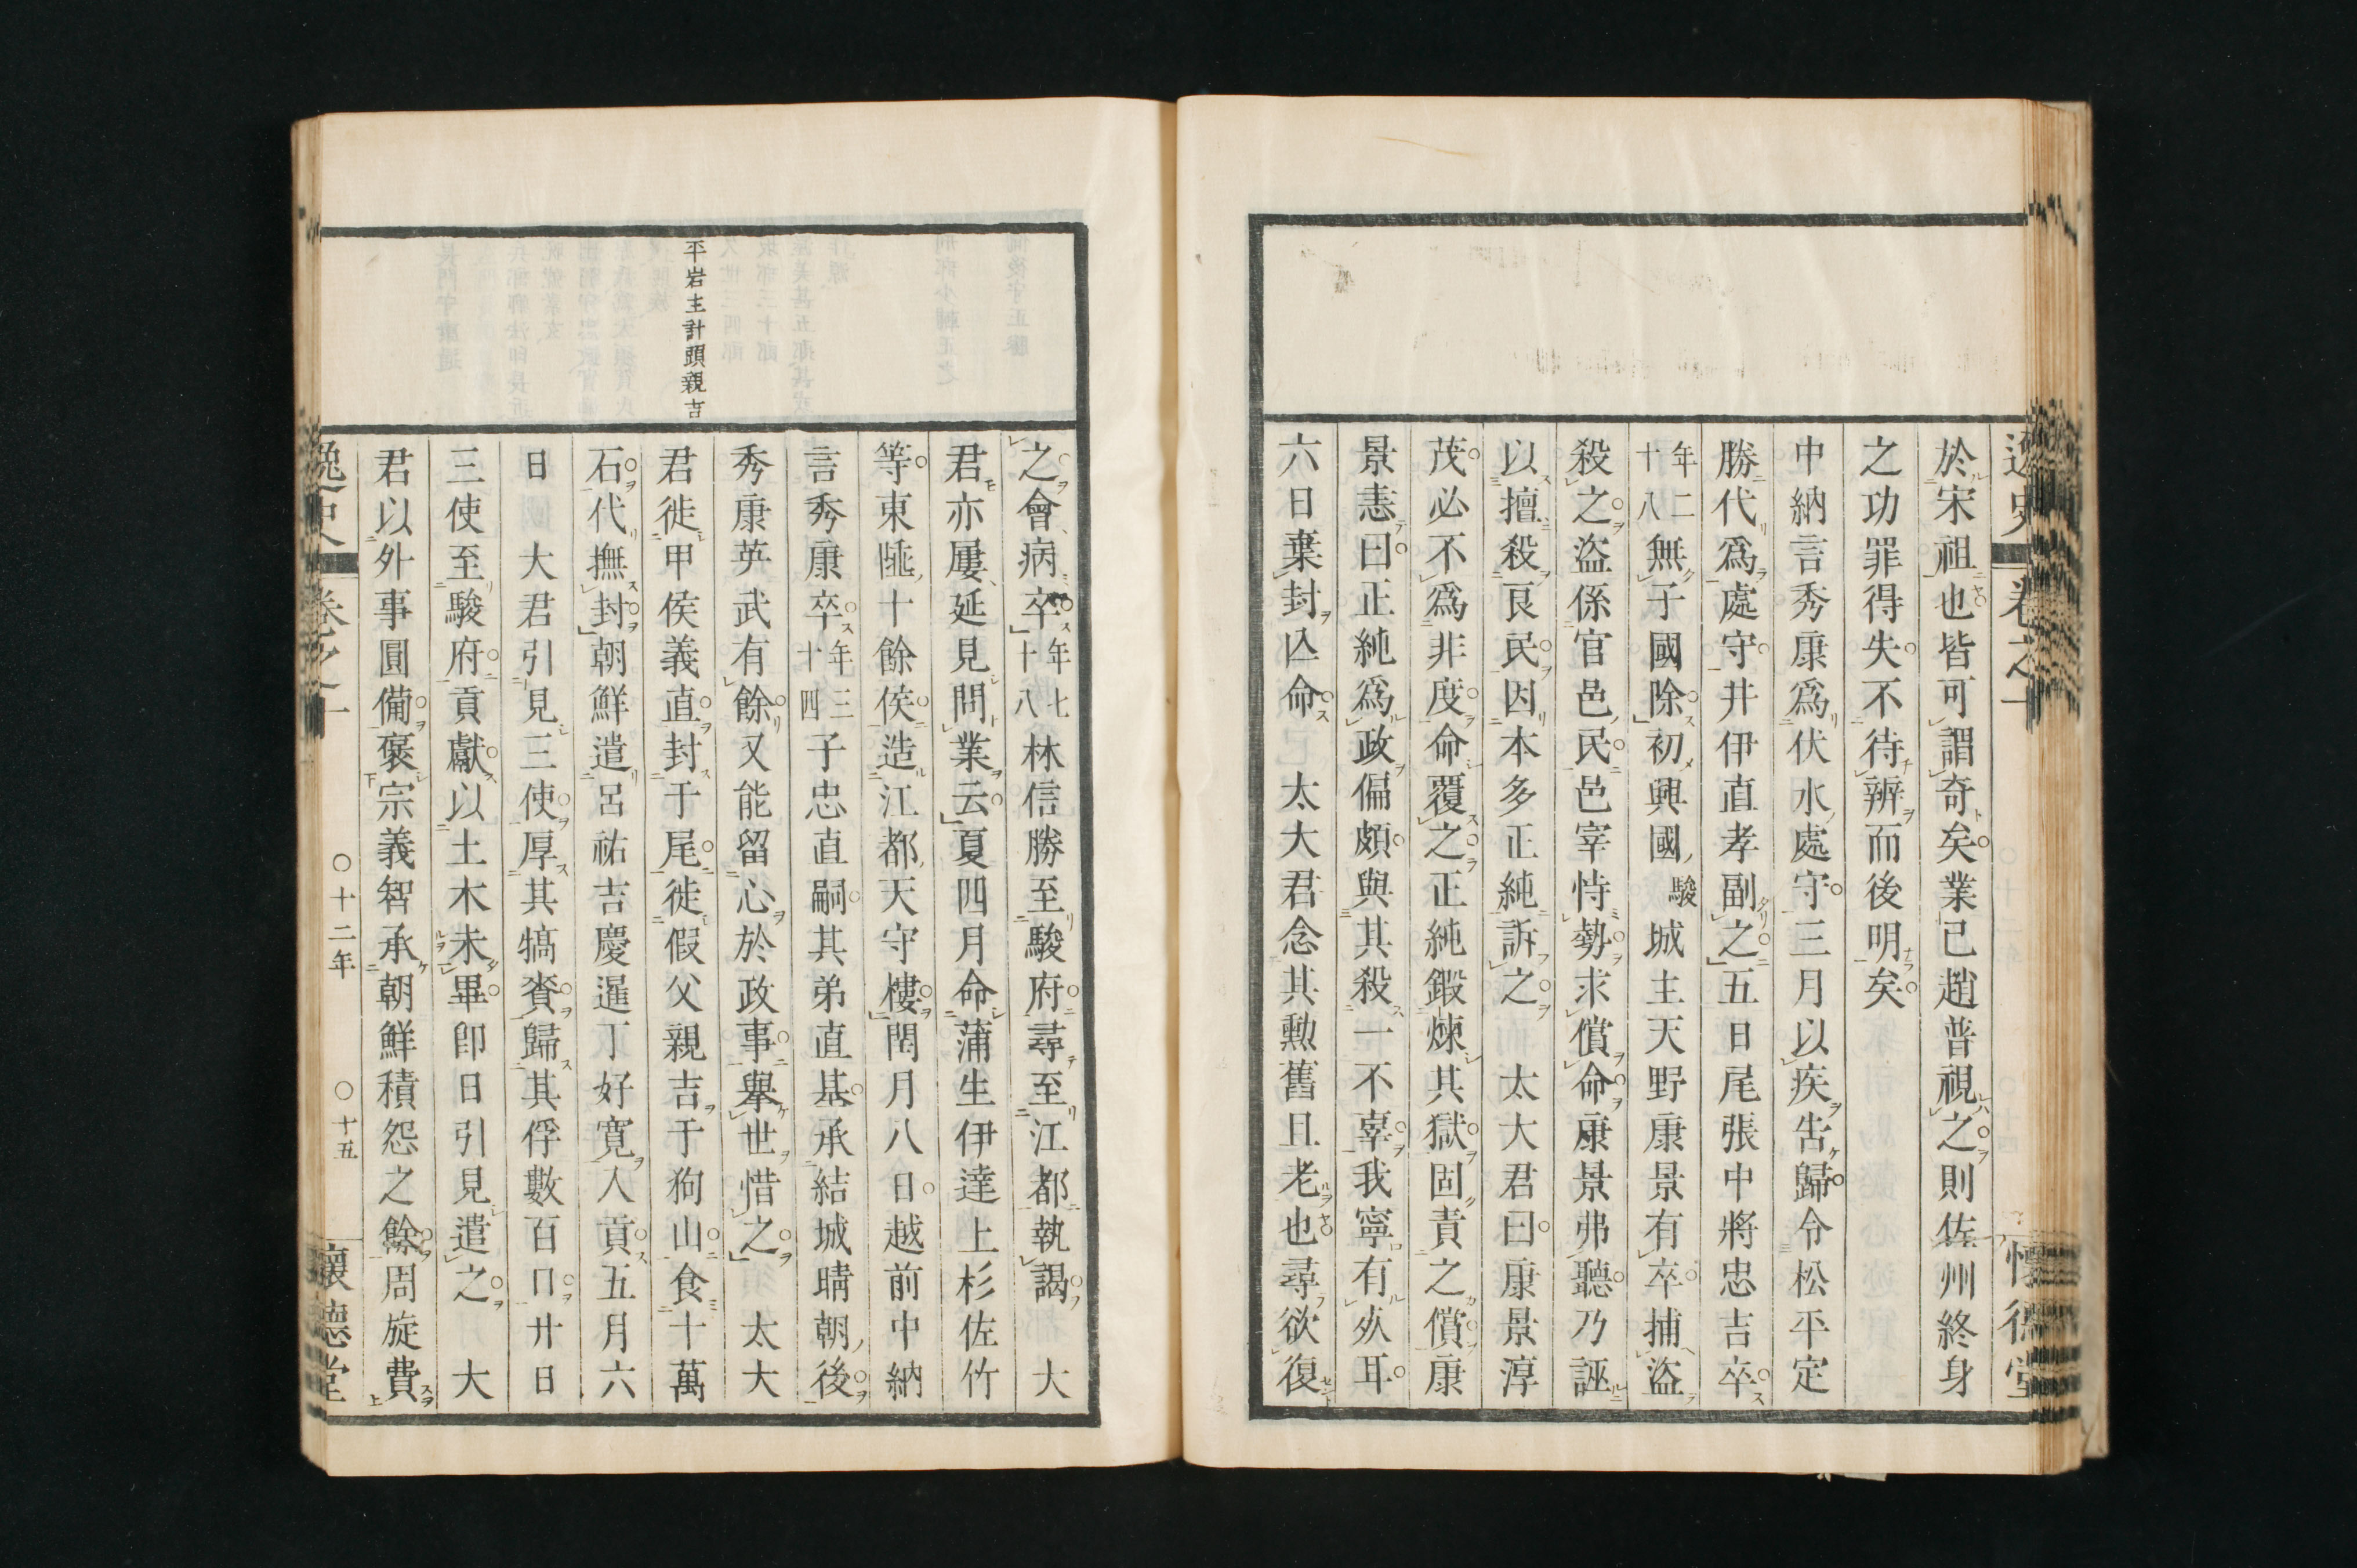 於宋祖也皆可謂奇矣業已趙普視之則佐州終身
之功罪得失不待辨而後明矣
中納言秀康爲伏水處守三月以疾告歸令松平定
勝代爲處守井伊直孝副之五日尾張中將忠吉卒
年二十八無子國除初興國駿城主天野康景有卒捕盜
殺之盜係官邑民邑宰恃勢求償命康景弗聽乃誣
以擅殺良民因本多正純訴之 太大君曰康景淳
茂必不爲非度命覆之正純鍛煉其獄固責之償康
景恚曰正純爲政偏頗與其殺一不辜我寧有亡耳
六日棄封亡命 太大君念其勲舊且老也尋欲復
平岩主計頭親吉
之會病卒年七十八林信勝至駿府尋至江都執謁 大
君亦屢延見問業云夏四月命蒲生伊達上杉佐竹
等東陲十餘侯造江都天守樓閏月八日越前中納
言秀康卒年三十四子忠直嗣其弟直基承結城晴朝後
秀康英武有餘又能留心於政事舉世惜之 太大
君徙甲侯義直封于尾徙假父親吉于狗山食十萬
石代撫封朝鮮遣呂祐吉慶暹丁好寬入貢五月六
日 大君引見三使厚其犒賚歸其俘數百口廿日
三使至駿府貢獻以土木未畢卽日引見遣之 大
君以外事圓備褒宗義智承朝鮮積怨之餘周旋費
逸史 卷之十 ○十二年 ○十五 懷德堂